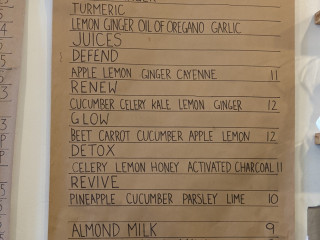 TURMERIC
LEMON GINGER OIL OF OREGANO GARLIC
JUICES
DEFEND
APPLE LEMON GINGER CAYENNE 11
RENEW
CUCUMBER CELERY KALE LEMON GINGER 12
GLOW
BEET CARROT CUCUMBER APPLE LEMON 12
DETOX
CELERY LEMON HONEY ACTIVATED CHARCOAL 11
REVIVE
PINEAPPLE CUCUMBER PARSLEY LIME 10
ALMOND MILK 9